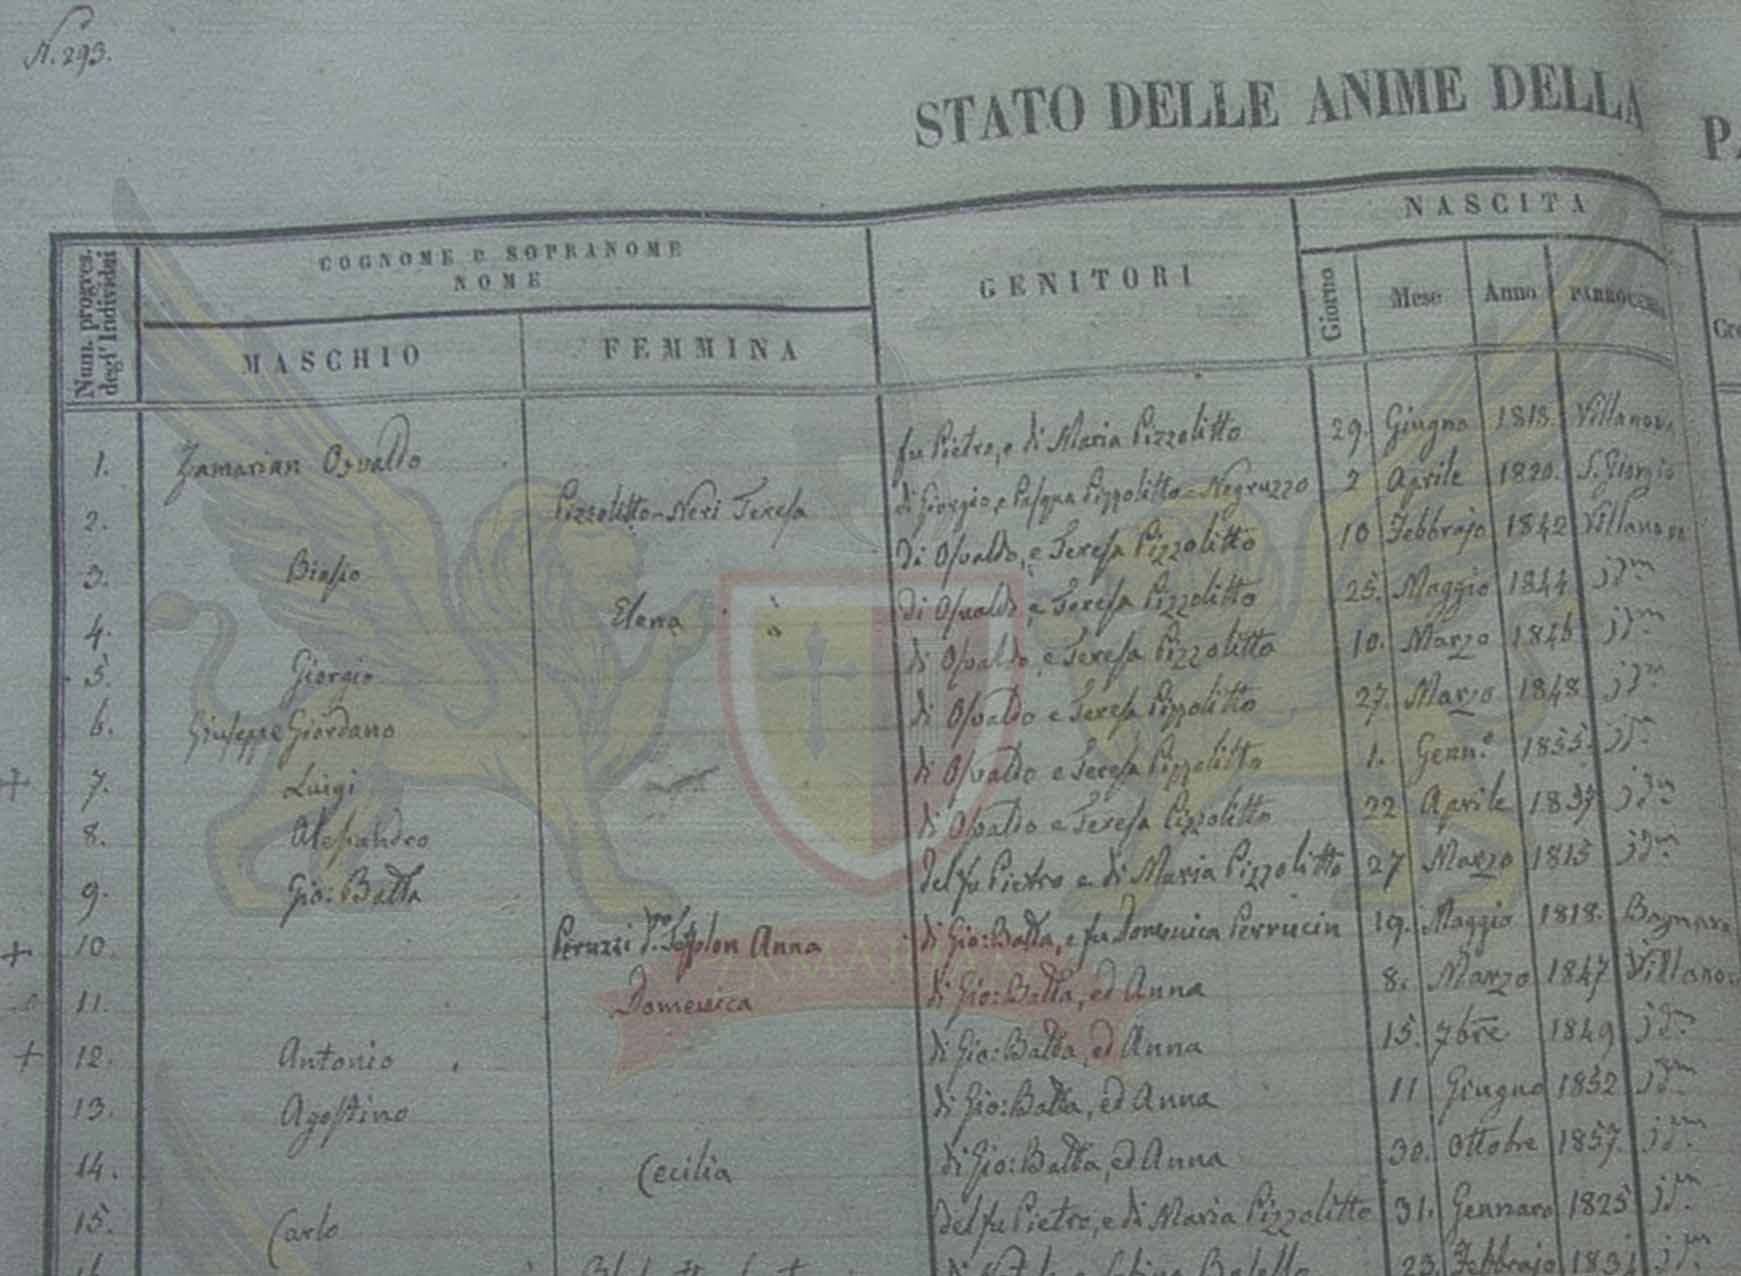 N. 293.
STATO DELLE ANIME DELLA
Num. progres. degl' Individui
COGNOME E SOPRANOME
NOME
GENITORI
NASCITA
MASCHIO FEMMINA
Giorno Mese Anno PARROCCHIA
1. Zamarian Osvaldo fu Pietro, e di Maria Pizzolitto 29. Giugno 1813. Villanova
2. Pizzolitto-Neri Teresa di Giorgio, e Pasqua Pizzolitto-Negruzzo 2 Aprile 1820. S. Giorgio
3. Biasio di Osvaldo, e Teresa Pizzolitto 10 Febbrajo 1842 Villanova
4. Elena di Osvaldo, e Teresa Pizzolitto 25. Maggio 1844 idm
5. Giorgio di Osvaldo, e Teresa Pizzolitto 10. Marzo 1846 idm
6. Giuseppe Giordano di Osvaldo e Teresa Pizzolitto 27. Marzo 1848 idm
+ 7. Luigi di Osvaldo e Teresa Pizzolitto 1. Genn.o 1855. idm
8. Alessandro di Osvaldo e Teresa Pizzolitto 22 Aprile idm
9. Gio: Batta del fu Pietro e di Maria Pizzolitto 27 Marzo 1815 idm
+ 10. Peruzzi Anna di Gio: Batta, e fu Domenica Perrucin 19. Maggio 1818.
11. Domenica di Gio: Batta, ed Anna 8. Marzo 1847 Villanova
+ 12. Antonio di Gio: Batta, ed Anna 15. 7bre 1849 idm
13. Agostino di Gio: Batta, ed Anna 11 Giugno 1852 idm
14. Cecilia di Gio: Batta, ed Anna 30. Ottobre 1857. idm
15. Carlo del fu Pietro, e di Maria Pizzolitto 31. Gennaro 1825 idm
23. Febbrajo